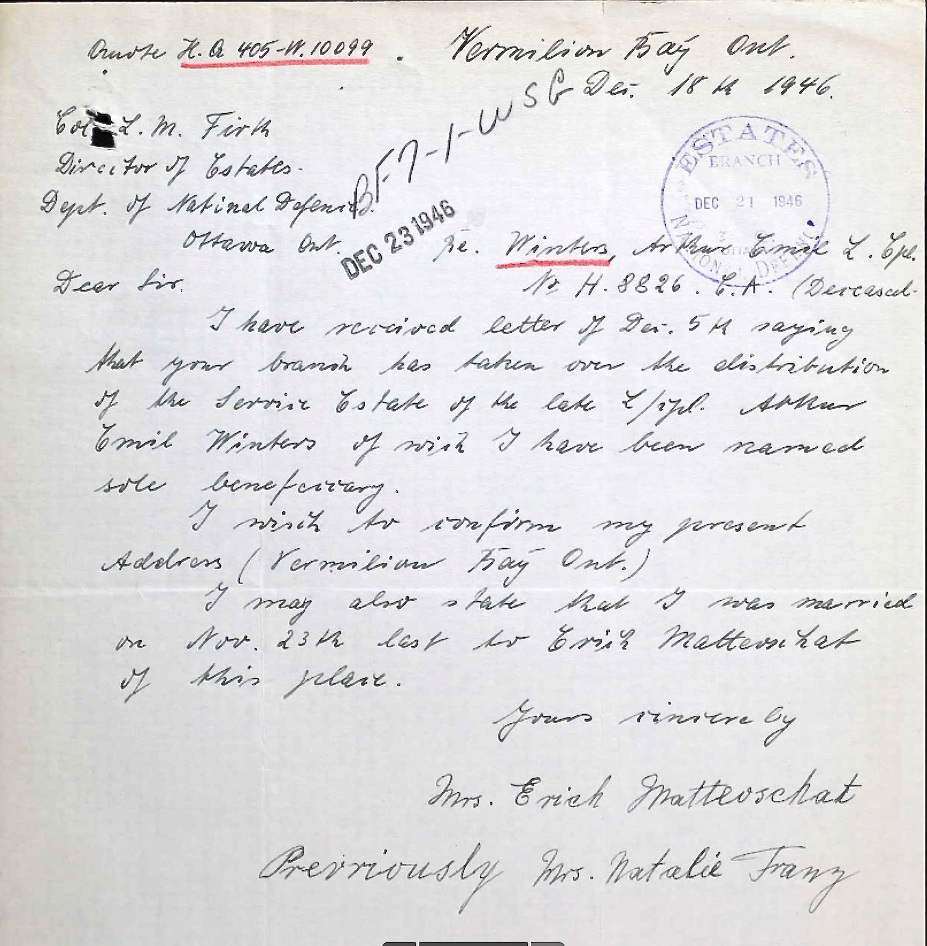 Quote H.Q 405-W.10099. Vermilion Bay Ont.
Dec. 18th 1946.
BF 7-1-WSG
Col L. M. Firth
Director of Estates.
Dept. of Natinal Defence.
Ottawa Ont.
DEC 23 1946
ESTATES
BRANCH
DEC 21 1946
Re. Winters, Arthur Emil L. Cpl.
No H. 8826. C.A. (Deceased.
Dear Sir.
I have received letter of Dec. 5th saying
that your branch has taken over the distribution
of the Service Estate of the late L/cpl. Arthur
Emil Winters of wich I have been named
sole beneficary.
I wish to confirm my present
Address (Vermilion Bay Ont.)
I may also state that I was married
on Nov. 23th last to Erich Matteoschat
of this place.
Yours sincerely
Mrs. Erich Matteoschat
Previriously Mrs. Natalie Franz